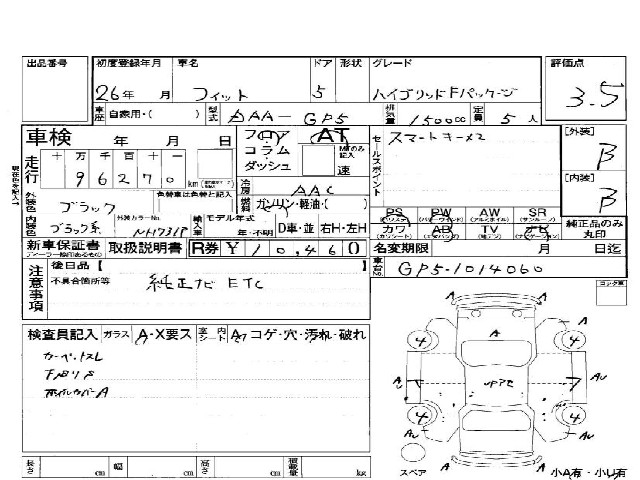 出品番号 初度登録年月 車名 ドア 形状 グレード 評価点
26年 月 フィット 5 ハイブリッドFパッケージ 3.5
車歴 自家用・( ) 型式 DAA-GP5 排気量 1500cc 定員 5人
車検 年 月 日 フロア コラム ダッシュ AT MTのみ記入 速
走行 十 万 千 百 十 一
96270 km
セールスポイント スマートキー×2
[外装] B
[内装] B
現在色を記入
冷房 AAC
燃料 ガソリン・軽油・( )
外装色 ブラック 色替車は色替と記入
内装色 ブラック系 外装カラーNo. NH731P
輸入車 モデル年式 年・不明 D車・並 右H・左H
PS PW AW SR
(パワステ) (パワーウインド) (アルミホイル) (サンルーフ)
カワ AB TV ナビ
純正品のみ丸印
新車保証書 取扱説明書 R券 ¥10,460 名変期限 月 日迄
注意事項 後日品【
不具合箇所等 純正ナビ ETC
車台No. GP5-1014060
検査員記入 ガラス A・X要ス 室内シート A コゲ・穴・汚れ・破れ
カーペットスレ
下廻りサビ
ホイルカバーA
A
A
4 4
AU AU
UPアセ 7
4 4
AU AU
A
スペア 小A有・小U有
長さ cm 幅 cm 高さ cm 積載量 kg